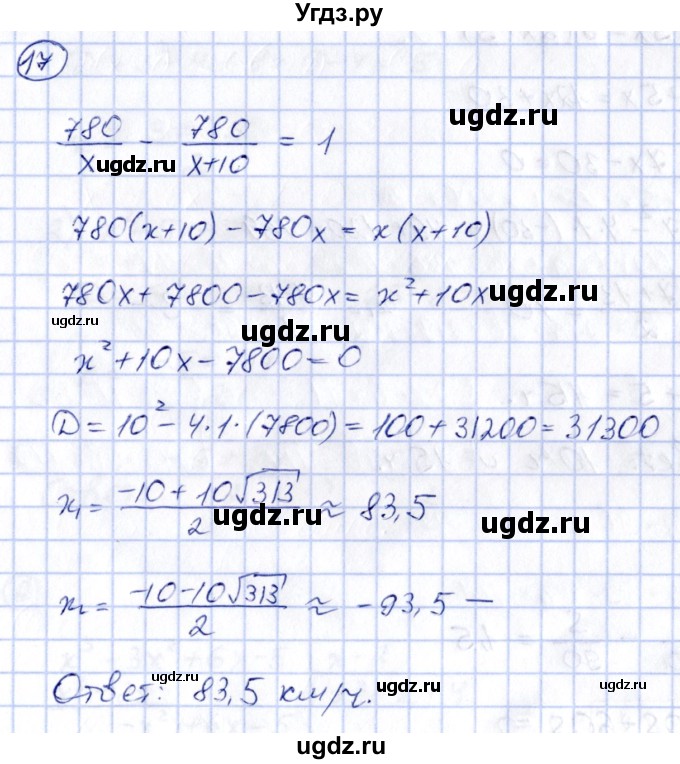 Угдз.ру
17
780/x - 780/(x+10) = 1
ugdz.ru ugdz.ru
780(x+10) - 780x = x(x+10)
780x + 7800 - 780x = x² + 10x
ugdz.ru ugdz.ru
ugdz.ru
x² + 10x - 7800 = 0
D = 10² - 4·1·(7800) = 100 + 31200 = 31300
x₁ = (-10 + 10√313)/2 ≈ 83,5
ugdz.ru ugdz.ru
x₂ = (-10 - 10√313)/2 ≈ -93,5 —
Ответ: 83,5 км/ч.
ugdz.ru ugdz.ru ugdz.ru ugdz.ru
ugdz.ru